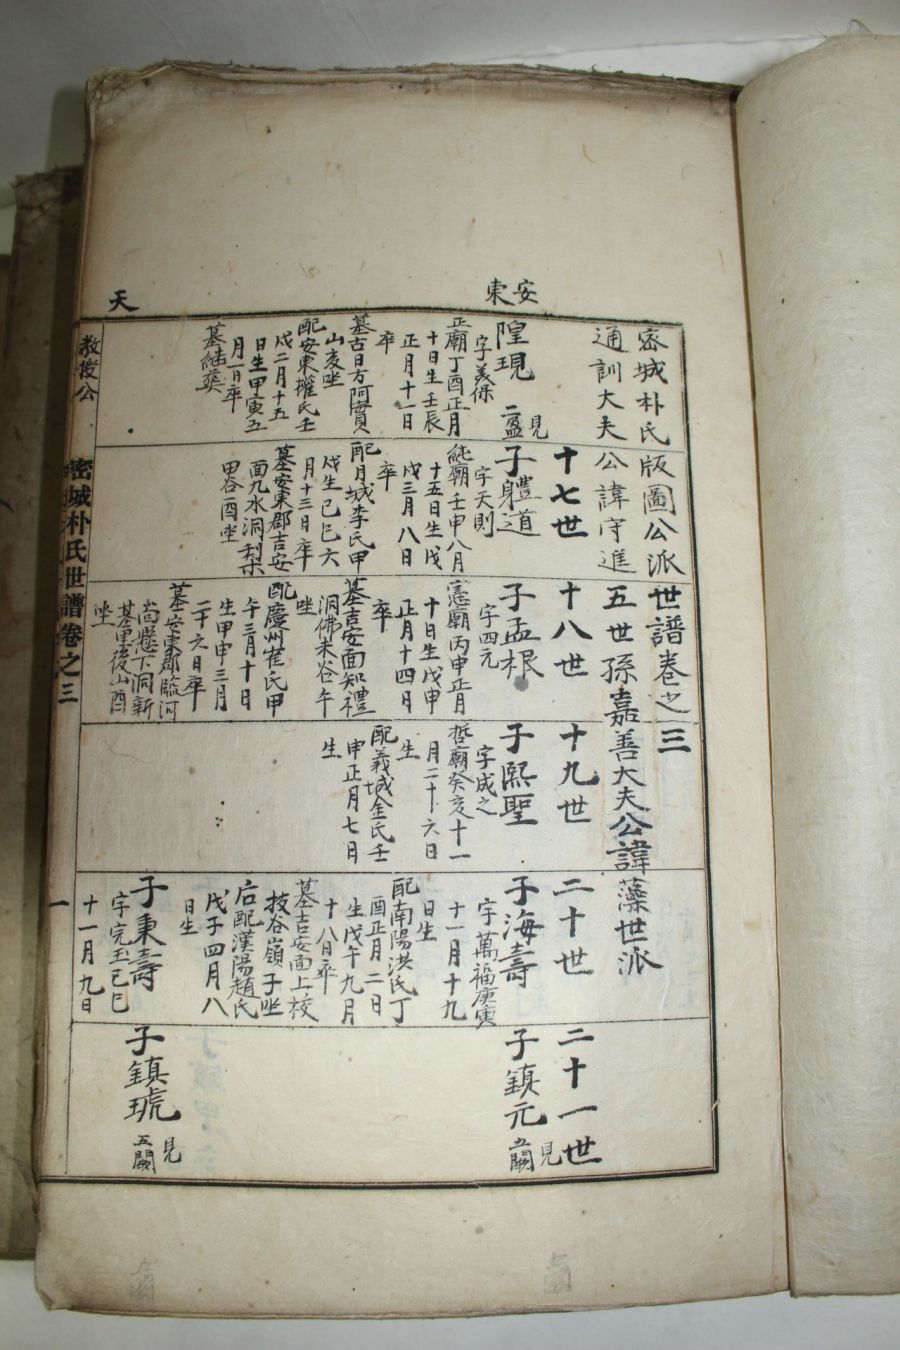 安東
天
密城朴氏版圖公派世譜卷之三
通訓大夫公諱守進五世孫嘉善大夫公諱藻世派
十七世
十八世
十九世
二十世
二十一世
隍現
見
二盈
字義保
正廟丁酉正月
十日生壬辰
正月十一日
卒
墓古日方阿實
山亥坐
配安東權氏壬
戊二月十五
日生甲寅五
月一日卒
墓繼葬
子體道
字天則
純廟壬申八月
十五日生戊
戌三月八日
卒
配月城李氏甲
戌生己巳六
月十三日卒
墓安東郡吉安
面九水洞梨木
甲谷酉坐
子孟根
字四元
憲廟丙申正月
十日生戊申
正月十四日
卒
墓吉安面知禮
洞佛未谷午
坐
配慶州崔氏甲
午三月十日
生甲申三月
二十六日卒
墓安東郡臨河
面縣下洞新
基里後山酉
坐
子熙聖
字成之
哲廟癸亥十一
月二十六日
生
配義城金氏壬
申正月七日
生
子海壽
字萬福庚寅
十一月十九
日生
配南陽洪氏丁
酉正月二日
生戊午九月
十八日卒
墓吉安面上校
技谷嶺子坐
后配漢陽趙氏
戊子四月八
日生
子秉壽
字完玉己巳
十一月九日
子鎮元
見
五闕
子鎮琥
見
五闕
教授公
密城朴氏世譜卷之三
一